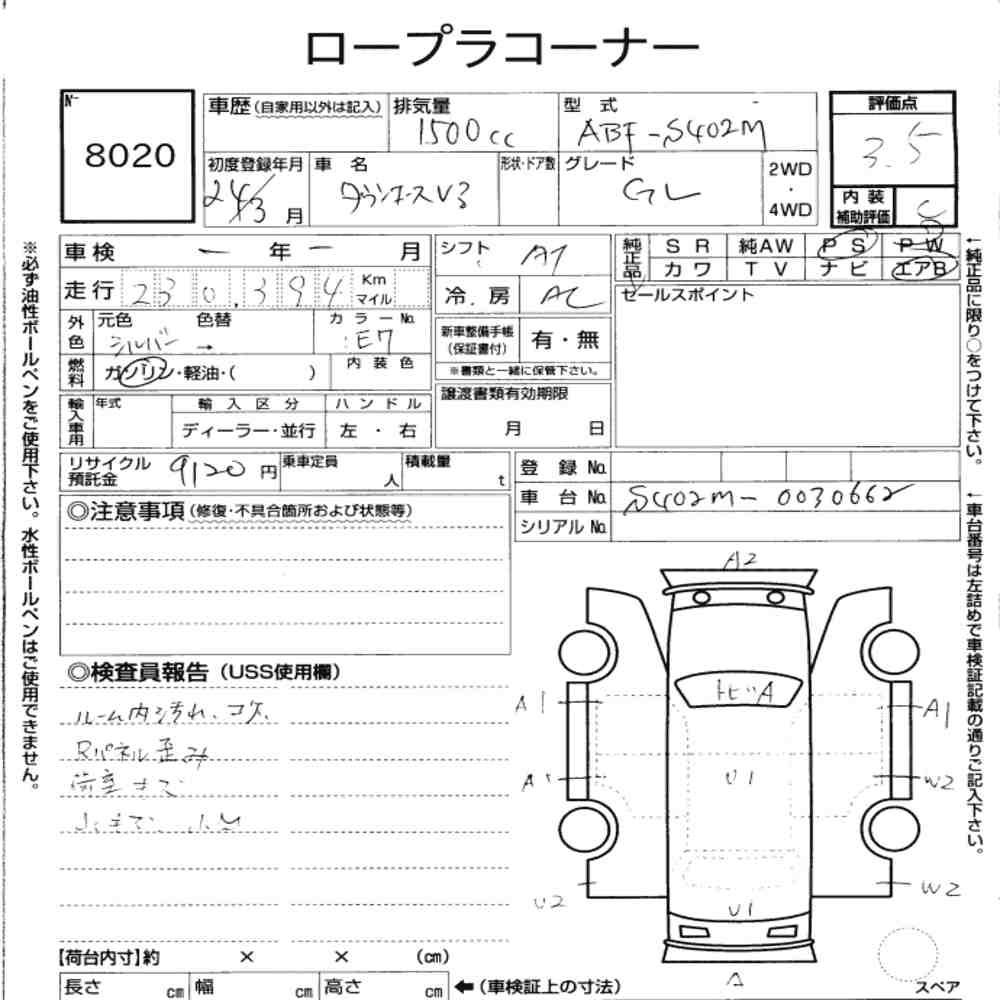 ロープラコーナー
№
8020
車歴 (自家用以外は記入)
排気量
1500cc
型 式
ABF-S402M
評価点
3.5
初度登録年月
24/3 月
車 名
タウンエースV3
形状・ドア数
グレード
GL
2WD
・
4WD
内 装
補助評価
C
車検 ー 年 ー 月
シフト
AT
純正品
SR
純AW
PS
PW
カワ
TV
ナビ
エアB
走行 230,394 Km
マイル
冷.房
AC
セールスポイント
外色
元色 色替
シルバー →
カラーNo.
E7
新車整備手帳
(保証書付)
有・無
燃料
ガソリン・軽油・( )
内装色
※書類と一緒に保管下さい。
輸入車用
年式
輸入区分
ハンドル
ディーラー・並行
左・右
譲渡書類有効期限
月 日
リサイクル
預託金
9120 円
乗車定員
人
積載量
t
登録 No.
車台 No.
S402M-0030662
シリアル No.
◎注意事項(修復・不具合箇所および状態等)
◎検査員報告 (USS使用欄)
ルーム内汚れ、コゲ、
Rパネル歪み
荷室キズ
A2
トビA
A1
A1
A1
U1
W2
U2
W2
U1
A
【荷台内寸】約 × × (cm)
長さ cm
幅 cm
高さ cm
←(車検証上の寸法)
スペア
※必ず油性ボールペンをご使用下さい。水性ボールペンはご使用できません。
←純正品に限り○をつけて下さい。
←車台番号は左詰めで車検証記載の通りご記入下さい。